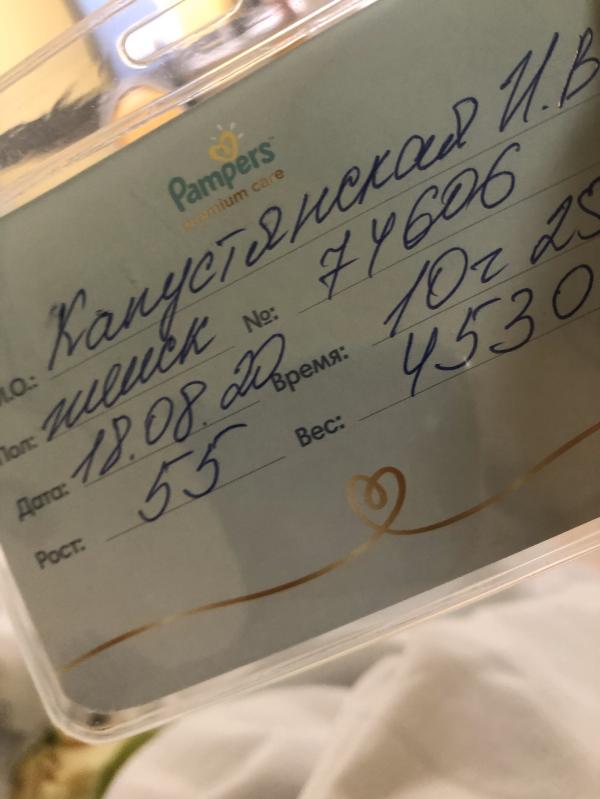 Pampers
premium care
И.О.: Капустянской И.В
Пол: женск №: 74606
Дата: 18.08.20 Время: 10г 25
Рост: 55 Вес: 4530